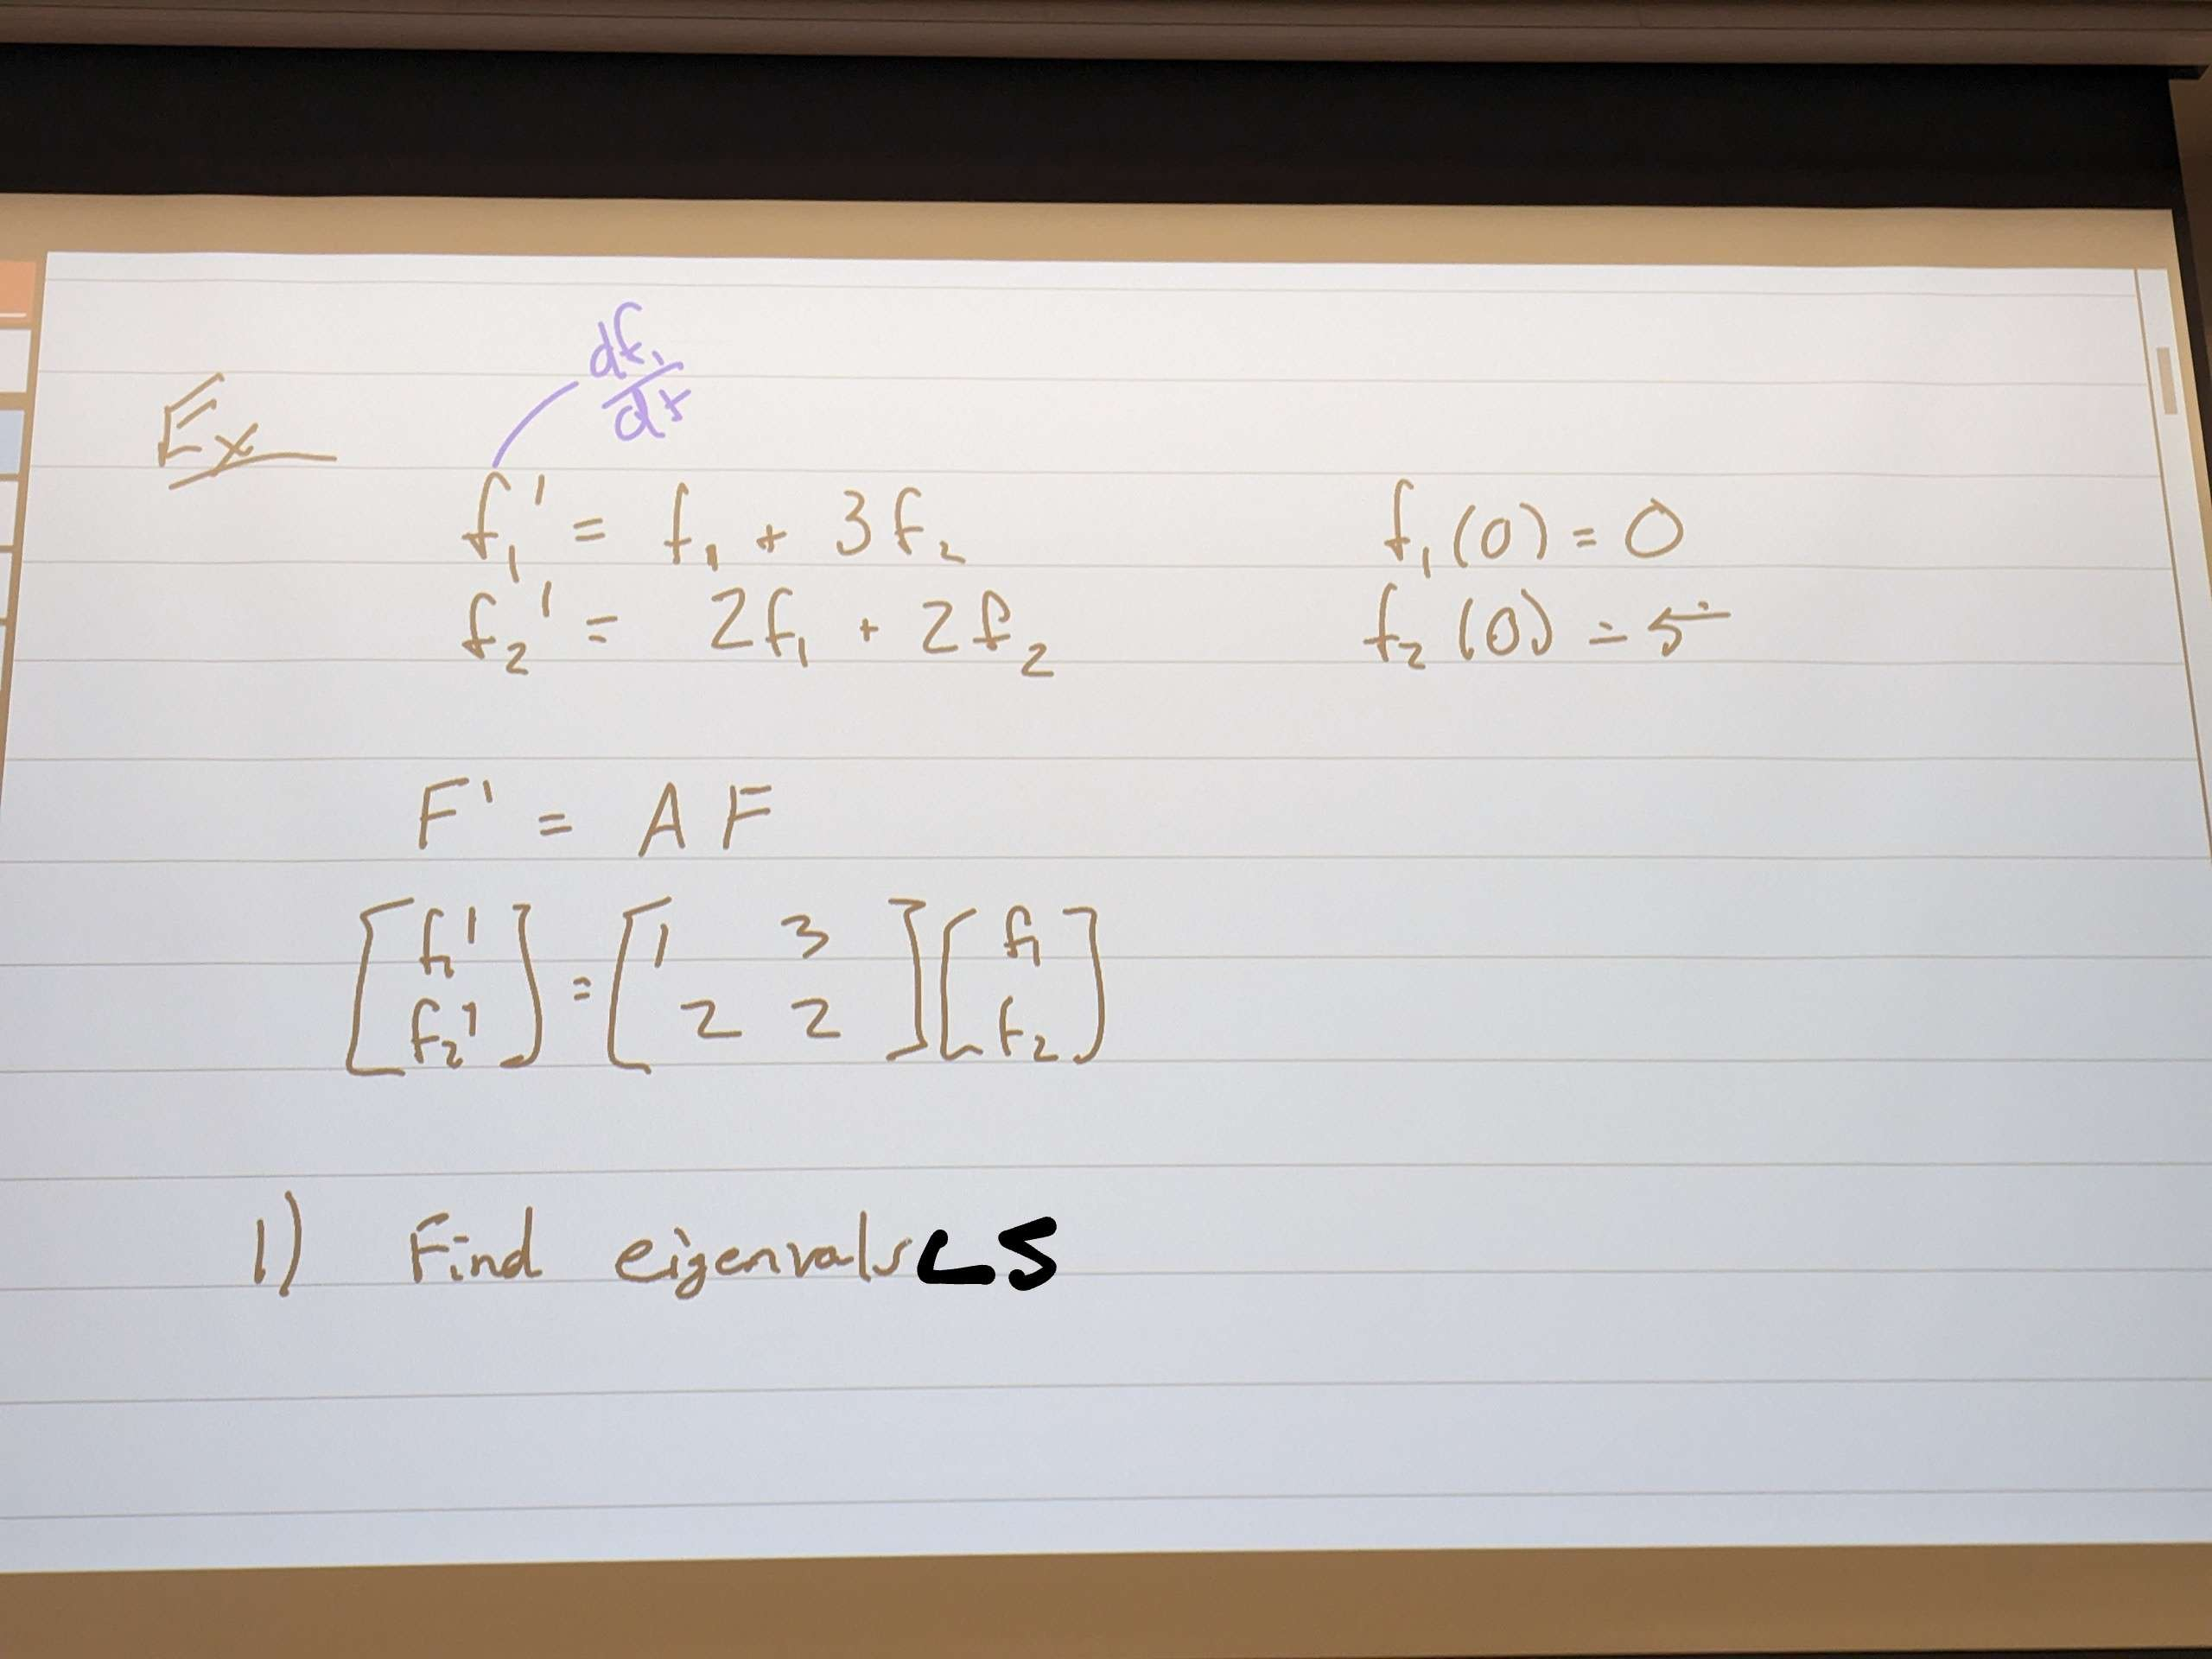 df₁/dx
Ex
f₁' = f₁ + 3f₂ f₁(0) = 0
f₂' = 2f₁ + 2f₂ f₂(0) = 5
F' = A F
[f₁' f₂'] = [1 3 2 2] [f₁ f₂]
1) Find eigenvals LS